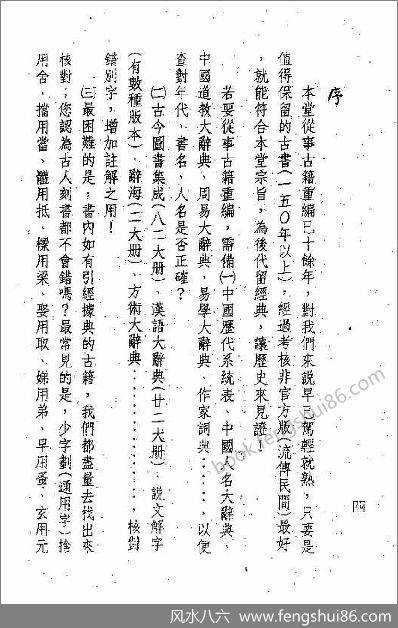 序
本堂從事古籍重編已十餘年，對我們來說早已駕輕就熟，只要是
值得保留的古書（一五０年以上），經過考核非官方版（流傳民間）最好
，就能符合本堂宗旨，為後代留經典，讓歷史來見證！
若要從事古籍重編，需備㈠中國歷代系統表、中國人名大辭典、
中國道教大辭典、周易大辭典、易學大辭典、作家詞典‥‥‥，以便
查對年代、書名，人名是否正確？
㈡古今圖書集成（八二大册）、漢語大辭典（廿二大册）、説文解字
（有數種版本）、辭海（二大册）、方術大辭典‥‥‥‥‥‥‥‥，核對
錯別字，增加註解之用！
㈢最困難的是；書內如有引經據典的古籍，我們都盡量去找出來
核對；您認為古人刻書都不會錯嗎？最常見的是，少字劃（通用字）捨
用舍，擋用當、牴用抵、樑用梁、娶用取、娣用弟、早用蚤、玄用元
四
book.fengshui86.com
风水八六 www.fengshui86.com